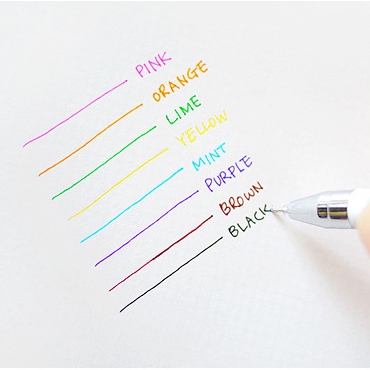 PINK
ORANGE
LIME
YELLOW
MINT
PURPLE
BROWN
BLACK